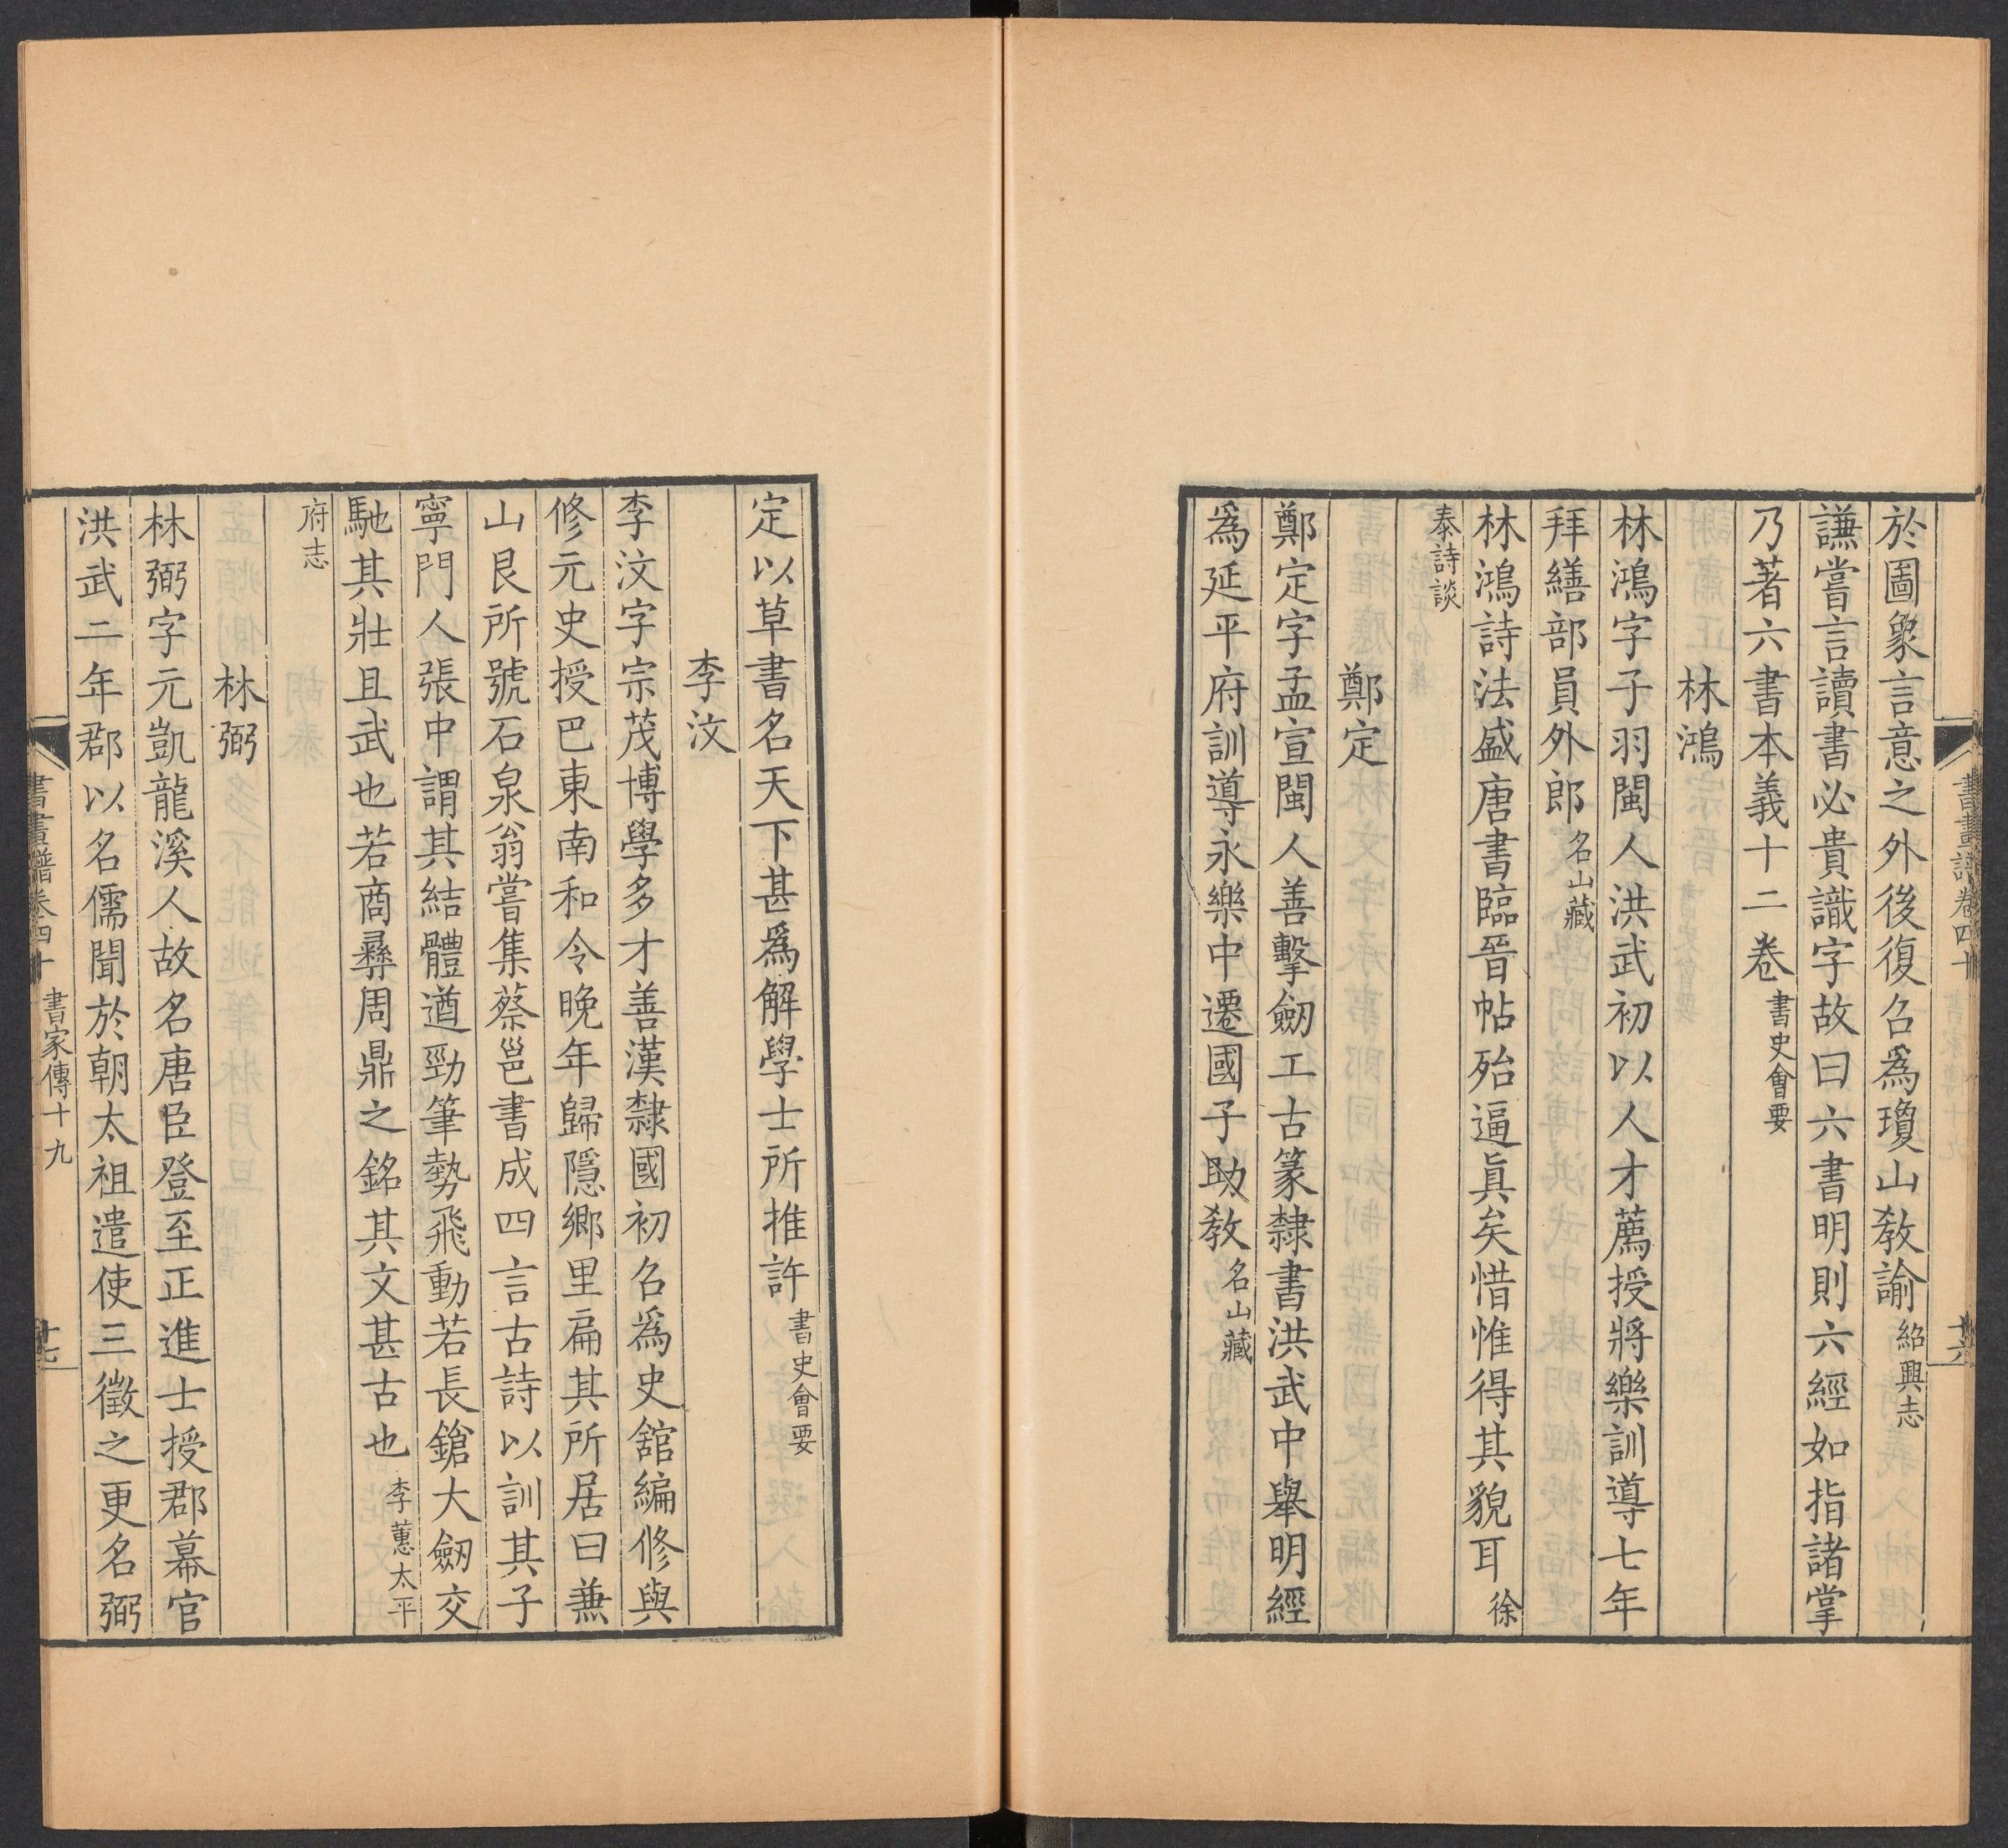 書畫譜卷四十
十六
於圖象言意之外後復召爲瓊山教諭紹興志
謙嘗言讀書必貴識字故曰六書明則六經如指諸掌
乃著六書本義十二卷書史會要
林鴻
林鴻字子羽閩人洪武初以人才薦授將樂訓導七年
拜繕部員外郎名山藏
林鴻詩法盛唐書臨晉帖殆逼眞矣惜惟得其貌耳徐
泰詩談
鄭定
鄭定字孟宣閩人善擊劒工古篆隸書洪武中舉明經
爲延平府訓導永樂中遷國子助教名山藏
定以草書名天下甚爲解學士所推許書史會要
李汶
李汶字宗茂博學多才善漢隸國初召爲史舘編修與
修元史授巴東南和令晚年歸隱鄉里扁其所居曰兼
山艮所號石泉翁嘗集蔡邕書成四言古詩以訓其子
寧門人張中謂其結體遒勁筆勢飛動若長鎗大劒交
馳其壯且武也若商彝周鼎之銘其文甚古也李蕙太平
府志
林弼
林弼字元凱龍溪人故名唐臣登至正進士授郡幕官
洪武二年郡以名儒聞於朝太祖遣使三徵之更名弼
書畫譜卷四十 書家傳十九
十七